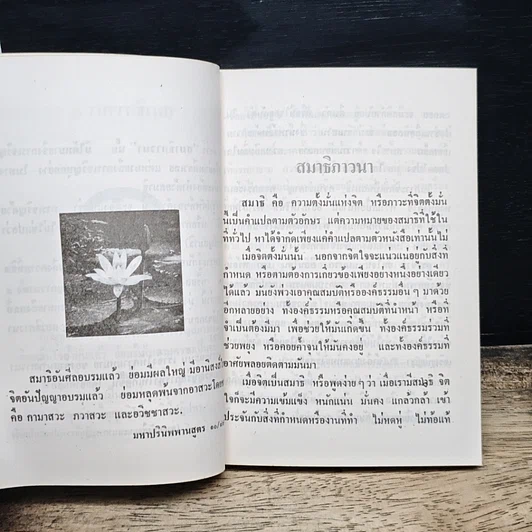 สมาธิอันศีลอบรมแล้ว ย่อมมีผลใหญ่ มีอานิสงส์
จิตอันปัญญาอบรมแล้ว ย่อมหลุดพ้นจากอาสวะ
คือ กามาสวะ ภวาสวะ และอวิชชาสวะ.
มหาปรินิพพานสูตร
สมาธิภาวนา
สมาธิ คือ ความตั้งมั่นแห่งจิต หรือภาวะที่จิตตั้งมั่น
นี่เป็นคำแปลตามตัวอักษร แต่ความหมายของสมาธิที่ใช้ใน
ที่ทั่วไป หาได้จำกัดเพียงแค่คำแปลตามตัวหนังสือเท่านั้นไม่
เมื่อจิตตั้งมั่นนั้น นอกจากจิตใจจะแน่วแน่อยู่กับสิ่งที่
กำหนด หรือตามต้องการเกี่ยวข้องเพียงอย่างหนึ่งอย่างเดียว
ได้แล้ว มันยังพ่วงเอาคุณสมบัติหรือองค์ธรรมอื่น ๆ มาด้วย
อีกหลายอย่าง ทั้งองค์ธรรมหรือคุณสมบัติที่นำหน้า หรือที่
จำเป็นต้องมีมา เพื่อช่วยให้มันเกิดขึ้น ทั้งองค์ธรรมร่วมที่
ช่วยพยุง หรือคอยค้ำจุนให้มันคงอยู่ และทั้งองค์ธรรมที่
อาศัยพลอยติดตามมันมา
เมื่อจิตเป็นสมาธิ หรือพูดง่าย ๆ ว่า เมื่อเรามีสมาธิ จิต
ใจก็จะมีความเข้มแข็ง หนักแน่น มั่นคง แกล้วกล้า เข้า
ประจันกับสิ่งที่กำหนดหรืองานที่ทำ ไม่หดหู่ ไม่ท้อแท้